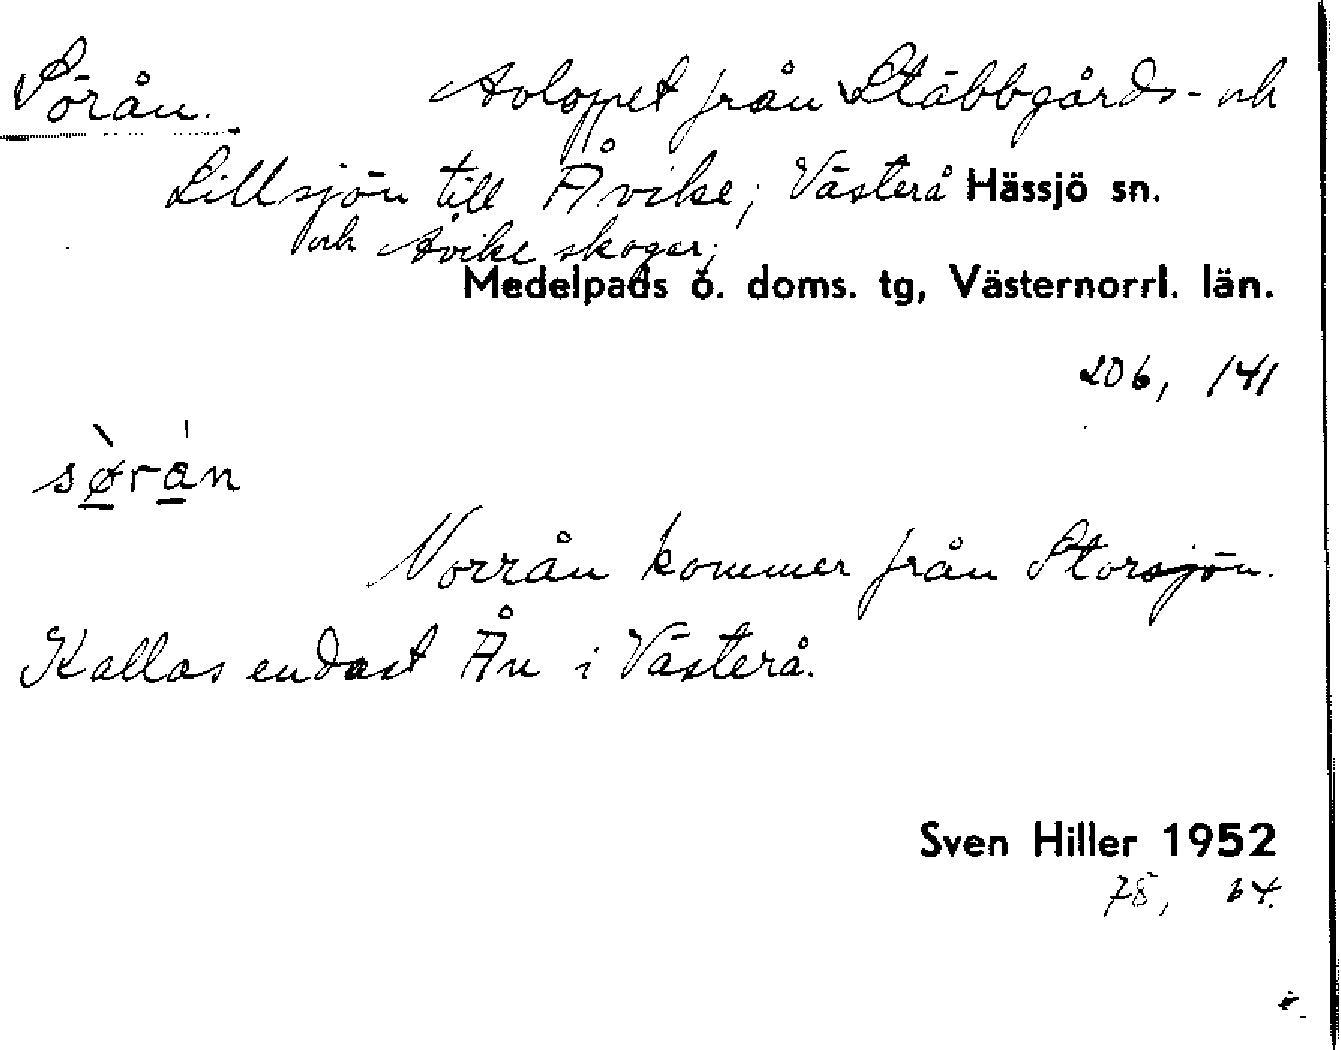 Sörån. Avloppet från Stäbbgårds- och
Lillsjön till Åvike; Västerå Hässjö sn.
och Åvike skogar;
Medelpads ö. doms. tg, Västernorrl. län.
206, 141
sø̀rán
Norrån kommer från Storsjön.
Kallas endast Ån i Västerå.
Sven Hiller 1952
78, 64.